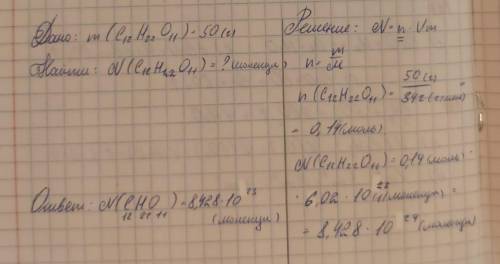 Дано: m(C12H22O11) = 50(г)
Найти: N(C12H22O11) = ? (молекул)
Ответ: N(CHO) = 8,428 · 10^23
12 22 11 (молекул)
Решение: N = n · Vm
n = m/M
n(C12H22O11) = 50(г)/342(г/моль) =
= 0,14(моль)
N(C12H22O11) = 0,14(моль) ·
· 6,02 · 10^23 (молекул) =
= 8,428 · 10^24 (молекул)